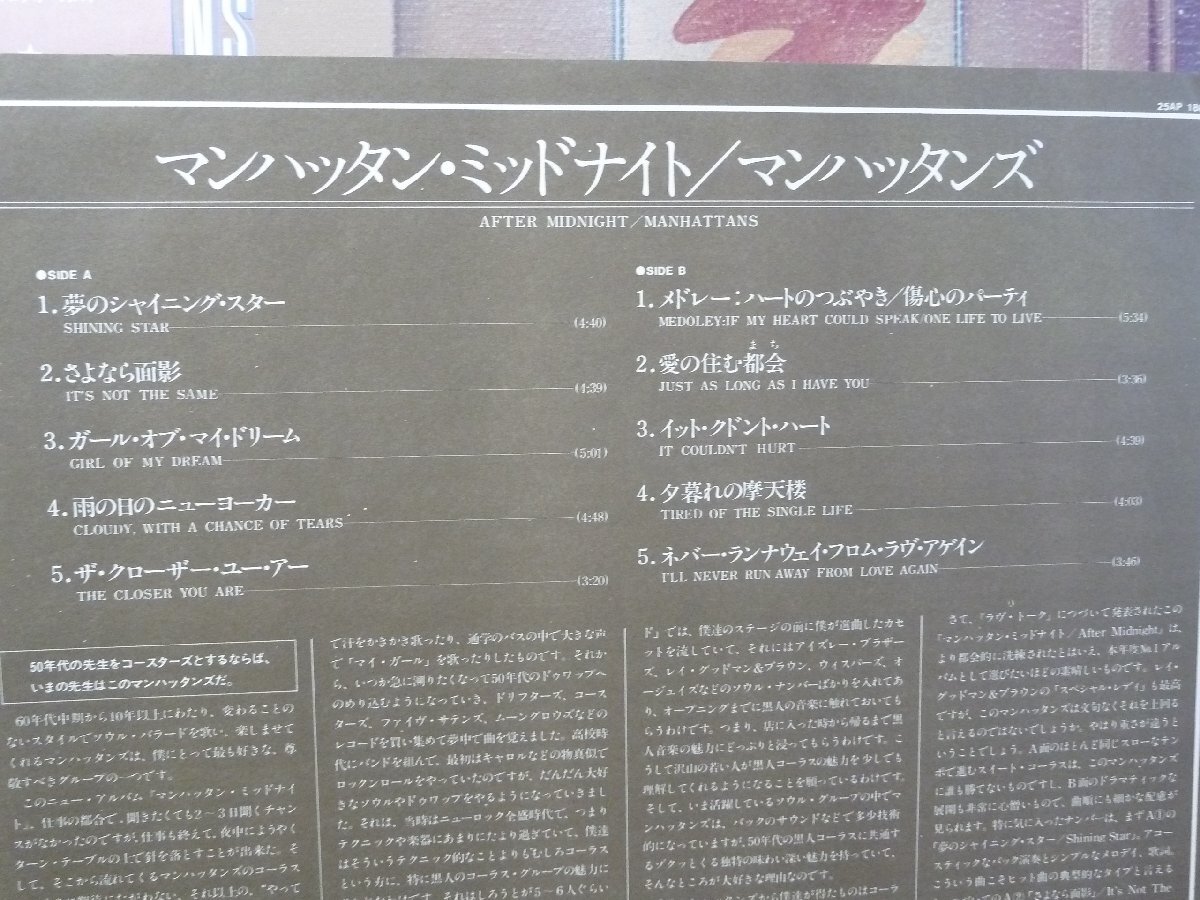 NS
25AP 18
マンハッタン・ミッドナイト/マンハッタンズ
AFTER MIDNIGHT/MANHATTANS
●SIDE A
1.夢のシャイニング・スター
SHINING STAR (4:40)
2.さよなら面影
IT'S NOT THE SAME (4:39)
3.ガール・オブ・マイ・ドリーム
GIRL OF MY DREAM (5:01)
4.雨の日のニューヨーカー
CLOUDY, WITH A CHANCE OF TEARS (4:48)
5.ザ・クローザー・ユー・アー
THE CLOSER YOU ARE (3:20)
●SIDE B
1.メドレー:ハートのつぶやき/傷心のパーティ
MEDOLEY:IF MY HEART COULD SPEAK/ONE LIFE TO LIVE (5:34)
まち
2.愛の住む都会
JUST AS LONG AS I HAVE YOU (3:36)
3.イット・クドント・ハート
IT COULDN'T HURT (4:39)
4.夕暮れの摩天楼
TIRED OF THE SINGLE LIFE (4:03)
5.ネバー・ランナウェイ・フロム・ラヴ・アゲイン
I'LL NEVER RUN AWAY FROM LOVE AGAIN (3:46)
50年代の先生をコースターズとするならば、
いまの先生はこのマンハッタンズだ。
60年代中期から10年以上にわたり、変わることの
ないスタイルでソウル・バラードを歌い、楽しませて
くれるマンハッタンズは、僕にとって最も好きな、尊
敬すべきグループの一つです。
このニュー・アルバム『マンハッタン・ミッドナイ
ト』、仕事の都合で、聞きたくても2〜3日聞くチャン
スがなかったのですが、仕事も終えて、夜中にようやく
ターン・テーブルの上で針を落とすことが出来た。そ
して、そこから流れてくるマンハッタンズのコーラス
それ以上の、"やって
で汗をかきかき歌ったり、通学のバスの中で大きな声
で「マイ・ガール」を歌ったりしたものです。それか
ら、いつか急に溯りたくなって50年代のドゥワップへ
のめり込むようになっていき、ドリフターズ、コース
ターズ、ファイヴ・サテンズ、ムーングロウズなどの
レコードを買い集めて夢中で曲を覚えました。高校時
代にバンドを組んで、最初はキャロルなどの物真似で
ロックンロールをやっていたのですが、だんだん大好
きなソウルやドゥワップをやるようになっていきまし
た。それは、当時はニューロック全盛時代で、つまり
テクニックや楽器にあまりにたより過ぎていて、僕達
はそういうテクニック的なことよりもむしろコーラス
という方に、特に黒人のコーラス・グループの魅力に
それはしろうとが5〜6人ぐらい
ド』では、僕達のステージの前に僕が選曲したカセ
ットを流していて、それにはアイズレー・ブラザー
ズ、レイ・グッドマン&ブラウン、ウィスパーズ、オ
ージェイズなどのソウル・ナンバーばかりを入れてあ
り、オープニングまでに黒人の音楽に触れておいても
らうわけです。つまり、店に入った時から帰るまで黒
人音楽の魅力にどっぷりと浸ってもらうわけです。こ
うして沢山の若い人が黒人コーラスの魅力を少しでも
理解してくれるようになることを願っているわけです。
そして、いま活躍しているソウル・グループの中でマ
ンハッタンズは、バックのサウンドなどで多少技術
的になっていますが、50年代の黒人コーラスに共通す
るゾクッとくる独特の味わい深い魅力を持っていて、
そんなところが大好きな理由なのです。
ンズから僕達が得たものはコーラ
さて、『ラヴ・トーク』につづいて発表されたこの
『マンハッタン・ミッドナイト/After Midnight』は、
より都会的に洗練されたとはいえ、本年度No.1アル
バムとして選びたいほどの素晴しいものです。レイ・
グッドマン&ブラウンの「スペシャル・レディ」も最高
ですが、このマンハッタンズは文句なくそれを上回る
と言えるのではないでしょうか。やはり重さが違うと
いうことでしょう。A面のほとんど同じスローなテン
ポで進むスイート・コーラスは、このマンハッタンズ
に誰も勝てないものですし、B面のドラマティックな
展開も非常に心憎いもので、曲順にも細かな配慮が
見られます。特に気に入ったナンバーは、まずA①の
「夢のシャイニング・スター/Shining Star」。アコー
スティックなバック演奏とシンプルなメロディ、歌詞。
こういう曲こそヒット曲の典型的なタイプと言える
A②「さよなら面影」/It's Not The